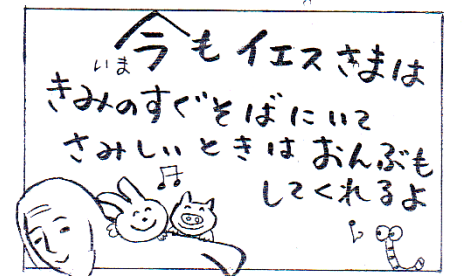 今もイエスさまは
いま
きみのすぐそばにいて
さみしいときはおんぶも
してくれるよ